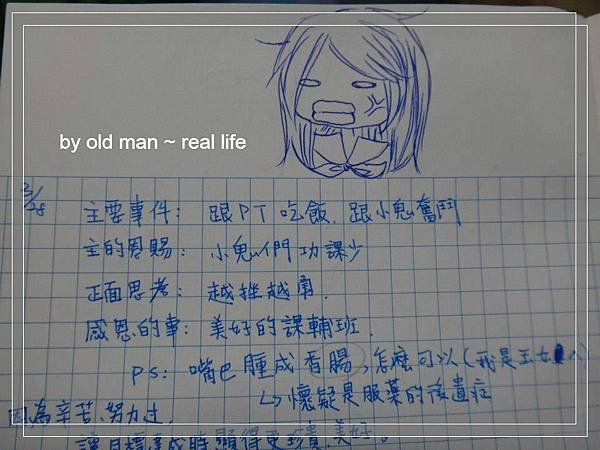 by old man ~ real life
3/28
主要事件: 跟PT吃飯. 跟小鬼奮鬥
主的恩賜: 小鬼們功課少
正面思考: 越挫越勇.
感恩的事: 美好的課輔班.
ps: 嘴巴腫成香腸, 怎麼可以(我是玉女
↳懷疑是服藥的後遺症
因為辛苦、努力過,
讓目標達成時顯得更珍貴、美好。